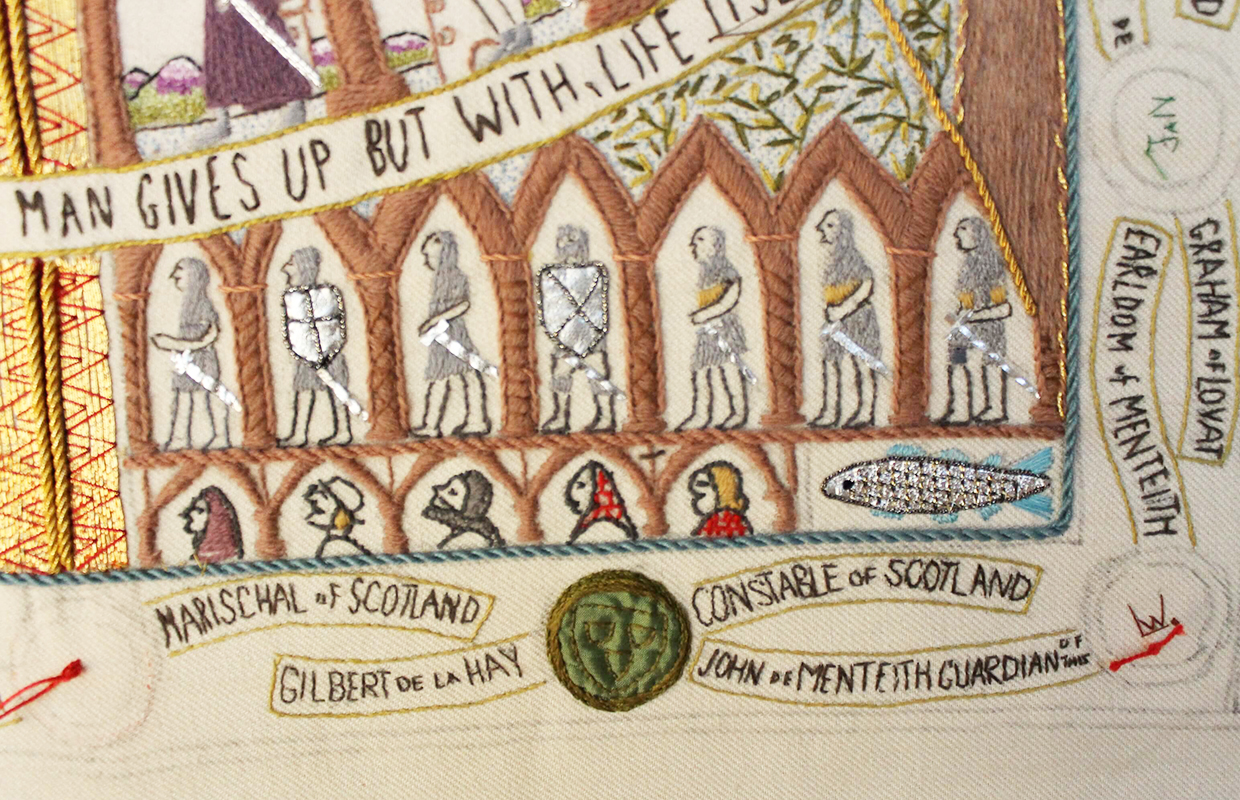 MAN GIVES UP BUT WITH LIFE
MARISCHAL OF SCOTLAND
GILBERT DE LA HAY
CONSTABLE OF SCOTLAND
JOHN DE MENTEITH GUARDIAN OF
DE
GRAHAM OF LOVAT
EARLDOM of MENTEITH